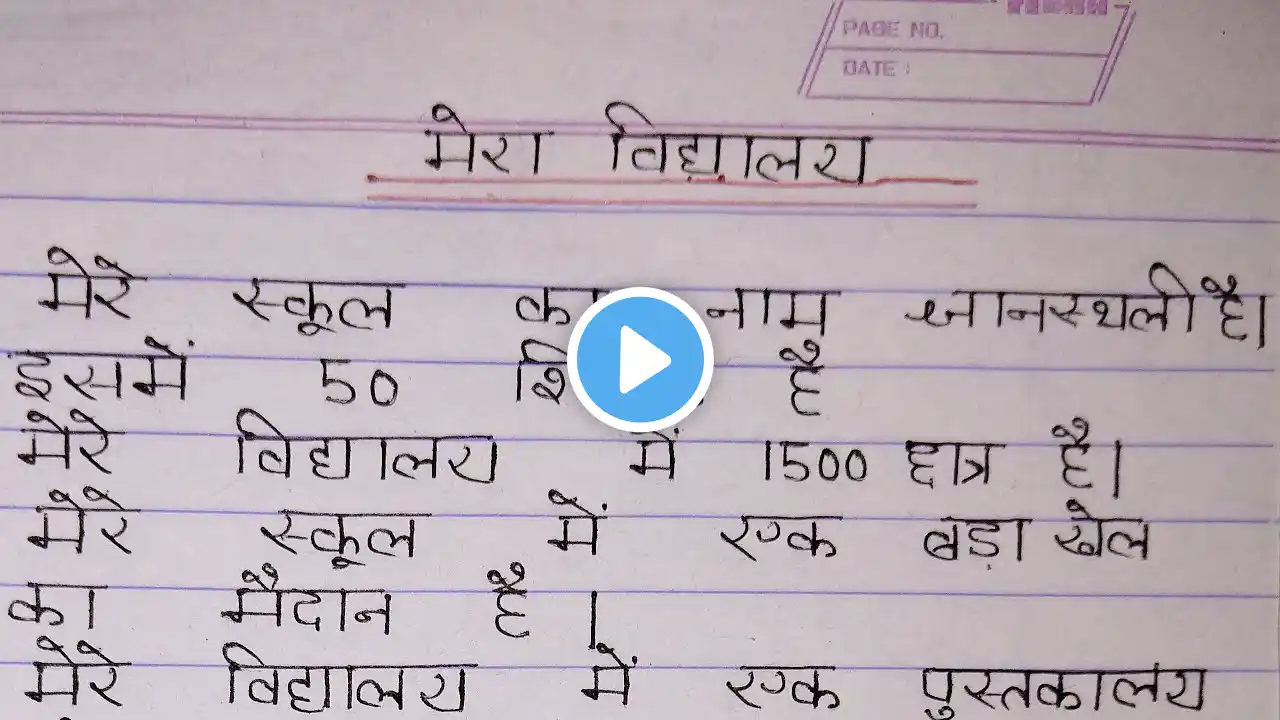 PAGE NO.
DATE :
मेरा विद्यालय
मेरे स्कूल का नाम ज्ञानस्थली है।
इसमें 50 है
मेरे विद्यालय में 1500 छात्र है।
मेरे स्कूल में एक बड़ा खेल
का मैदान है ।
मेरे विद्यालय में एक पुस्तकालय